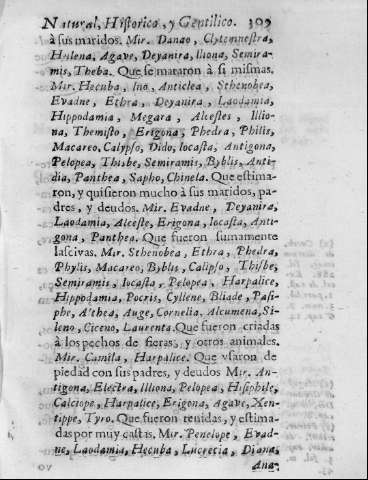 Natural, Historica, y Gentilico. 309
à sus maridos. Mir. Danao, Clytemnestra,
Helena, Agave, Deyanira, Iliona, Semira-
mis, Theba. Que se mataron à si mismas.
Mir. Hecuba, Ino, Anticlea, Sthenobea,
Evadne, Ethra, Deyanira, Laodamia,
Hippodamia, Megara, Alcestes, Illio-
na, Themisto, Erigona, Phedra, Philis,
Macareo, Calypso, Dido, Iocasta, Antigona,
Pelopea, Thisbe, Semiramis, Byblis, Anti-
dia, Panthea, Sapho, Chinela. Que estima-
ron, y quisieron mucho à sus maridos, pa-
dres, y deudos. Mir. Evadne, Deyanira,
Laodamia, Alceste, Erigona, Iocasta, Anti-
gona, Panthea. Que fueron sumamente
lascivas. Mir. Sthenobea, Ethra, Phedra,
Phylis, Macareo, Byblis, Calipso, Thisbe,
Semiramis, Iocasta, Pelopea, Harpalice,
Hippodamia, Pocris, Cyllene, Bliade, Pasi-
phe, Althea, Auge, Cornelia, Alcumena, Si-
leno, Ciceno, Laurenta. Que fueron criadas
à los pechos de fieras, y otros animales.
Mir. Camila, Harpalice. Que vsaron de
piedad con sus padres, y deudos Mir. An-
tigona, Electra, Illiona, Pelopea, Hisiphile,
Calciope, Harpalice, Erigona, Agave, Xan-
tippe, Tyro. Que fueron tenidas, y estima-
das por muy castas. Mir. Penelope, Evad-
ne, Laodamia, Hecuba, Lucrecia, Diana,
Ana-